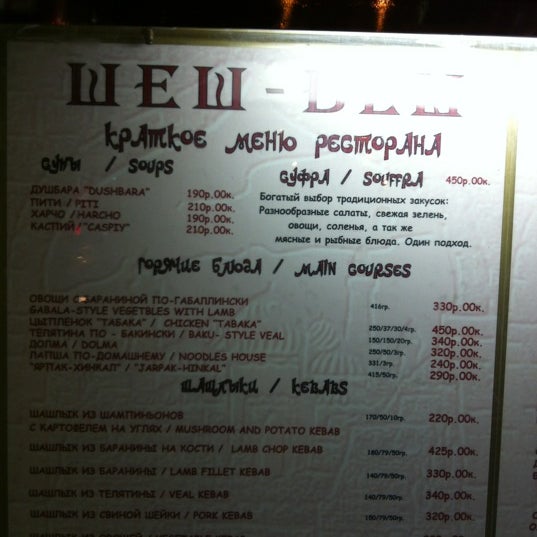 ШЕШ - БЕШ
КРАТКОЕ МЕНЮ РЕСТОРАНА
СУПЫ / SOUPS
ДУШБАРА "DUSHBARA" 190р.00к.
ПИТИ / PITI 210р.00к.
ХАРЧО / HARCHO 190р.00к.
КАСПИЙ / "CASPIY" 210р.00к.
СУФРА / SOUFFRA 450р.00к.
Богатый выбор традиционных закусок:
Разнообразные салаты, свежая зелень,
овощи, соленья, а так же
мясные и рыбные блюда. Один подход.
ГОРЯЧИЕ БЛЮДА / MAIN COURSES
ОВОЩИ С БАРАНИНОЙ ПО-ГАБАЛЛИНСКИ
GABALA-STYLE VEGETBLES WITH LAMB 416гр. 330р.00к.
ЦЫПЛЕНОК "ТАБАКА" / CHICKEN "TABAKA" 250/37/30/4гр. 450р.00к.
ТЕЛЯТИНА ПО - БАКИНСКИ / BAKU- STYLE VEAL 150/150/20гр. 340р.00к.
ДОЛМА / DOLMA 250/50/3гр. 320р.00к.
ЛАПША ПО-ДОМАШНЕМУ / NOODLES HOUSE 331/3гр. 240р.00к.
"ЯРПАК-ХИНКАЛ" / "JARPAK-HINKAL" 415/50гр. 290р.00к.
ШАШЛЫКИ / KEBABS
ШАШЛЫК ИЗ ШАМПИНЬОНОВ 170/50/10гр. 220р.00к.
С КАРТОФЕЛЕМ НА УГЛЯХ / MUSHROOM AND POTATO KEBAB
ШАШЛЫК ИЗ БАРАНИНЫ НА КОСТИ / LAMB CHOP KEBAB 180/79/50гр. 425р.00к.
ШАШЛЫК ИЗ БАРАНИНЫ / LAMB FILLET KEBAB 140/79/50гр. 330р.00к.
ШАШЛЫК ИЗ ТЕЛЯТИНЫ / VEAL KEBAB 140/79/50гр. 340р.00к.
ШАШЛЫК ИЗ СВИНОЙ ШЕЙКИ / PORK KEBAB 150/79/50гр. 320р.00к.